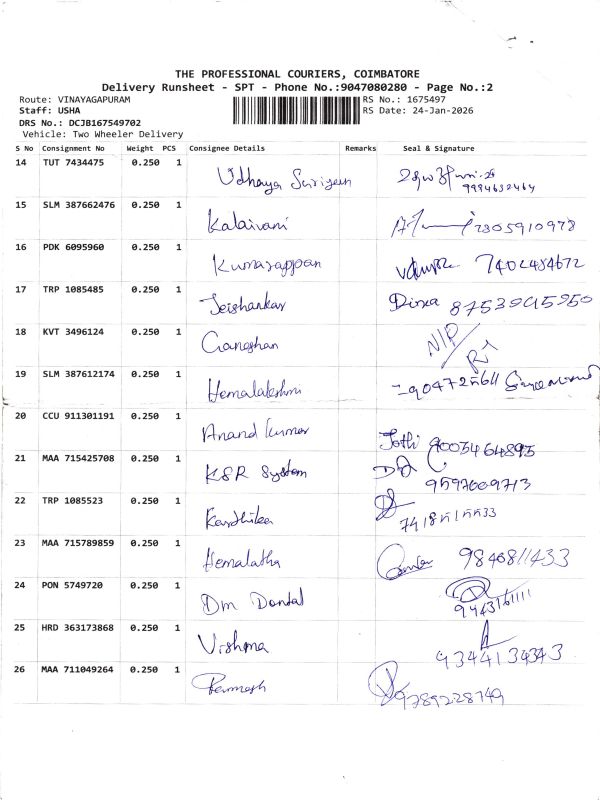 THE PROFESSIONAL COURIERS, COIMBATORE
Delivery Runsheet - SPT - Phone No.:9047080280 - Page No.:2
Route: VINAYAGAPURAM
Staff: USHA
DRS No.: DCJB167549702
Vehicle: Two Wheeler Delivery
RS No.: 1675497
RS Date: 24-Jan-2026
S No Consignment No Weight PCS Consignee Details Remarks Seal & Signature
14 TUT 7434475 0.250 1 Udhaya Suriyan
15 SLM 387662476 0.250 1 Kalaivani
16 PDK 6095960 0.250 1 Kumarappan 7402484672
17 TRP 1085485 0.250 1 Jeishankar
18 KVT 3496124 0.250 1 Ganeshan
19 SLM 387612174 0.250 1 Hemalakshmi
20 CCU 911301191 0.250 1 Anand Kumar Jothi 9003464895
21 MAA 715425708 0.250 1 KSR System 9597609713
22 TRP 1085523 0.250 1 Karthika
23 MAA 715789859 0.250 1 Hemalatha 9840811433
24 PON 5749720 0.250 1 Dm Dental 9443161111
25 HRD 363173868 0.250 1 9344134343
26 MAA 711049264 0.250 1 9789228749